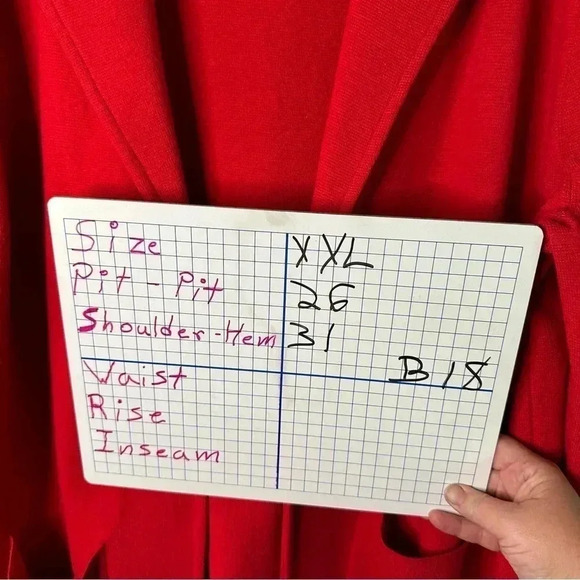 Size XXL
Pit - Pit 26
Shoulder-Hem 31
B18
Waist
Rise
Inseam